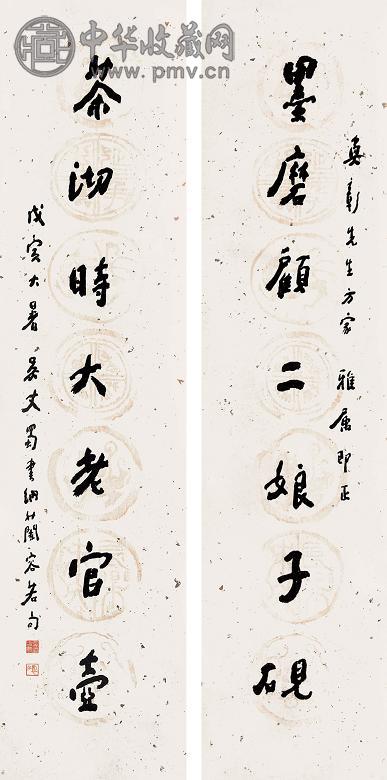 中华收藏网
www.pmv.cn
真彰先生方家 雅属即正
墨磨顧二娘子硯
茶沏時大老官壺
戊寅大暑吴丈蜀書納兰容若句